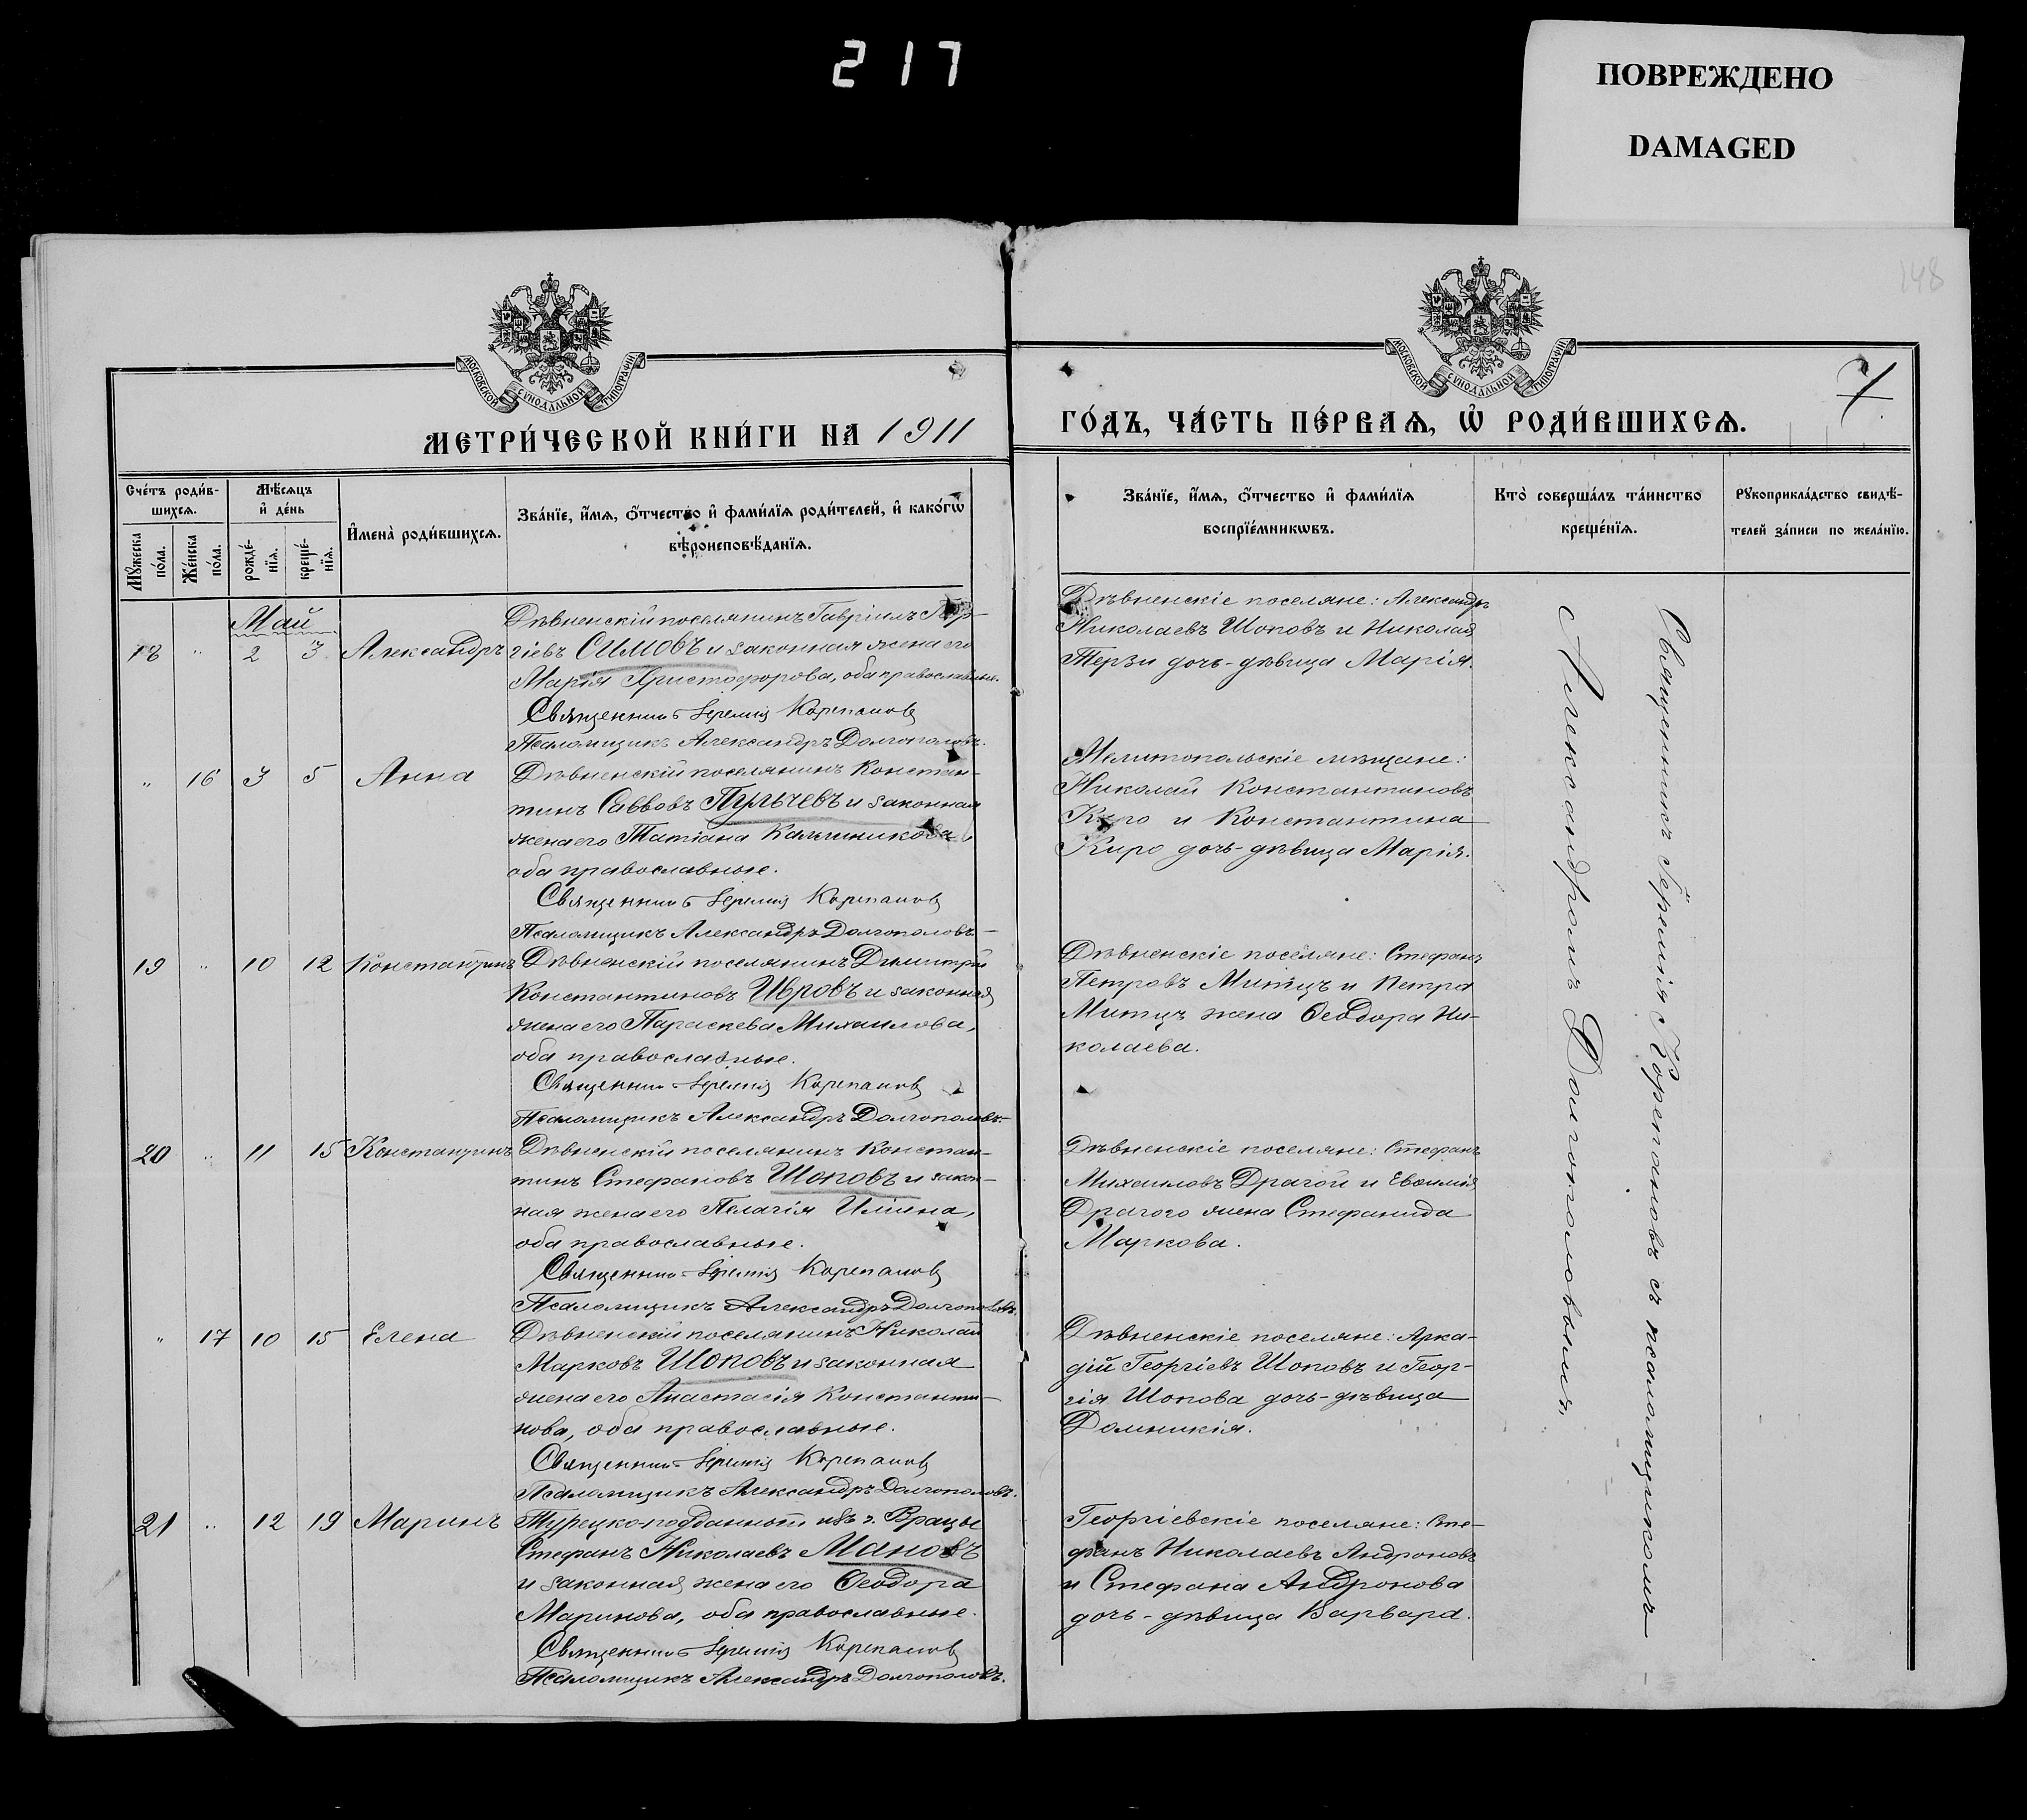 217
ПОВРЕЖДЕНО
DAMAGED
148
МОСКОВСКОЙ СѴНОДАЛЬНОЙ ТИПОГРАФІИ
МОСКОВСКОЙ СѴНОДАЛЬНОЙ ТИПОГРАФІИ
7
МЕТРИ́ЧЕСКОЙ КНИ́ГИ НА 1911
ГО́ДЪ, ЧА́СТЬ ПЕ́РВАѦ, Ѽ РОДИ́ВШИХСѦ.
Сче́тъ роди́в-
шихсѧ.
Мꙋ́жеска по́ла.
Же́нска по́ла.
Мѣ́сѧцъ
и҆ де́нь
рожде́-
нїѧ.
креще́-
нїѧ.
И҆мена̀ роди́вшихсѧ.
Зва́нїе, и҆́мѧ, ѻ҆́тчество и҆ фами́лїѧ роди́телей, и҆ како́гѡ
вѣроисповѣ́данїѧ.
Зва́нїе, и҆́мѧ, ѻ҆́тчество и҆ фами́лїѧ
воспрїе́мникѡвъ.
Кто̀ соверша́лъ та́инство
креще́нїѧ.
Рꙋкоприкла́дство свидѣ́-
телей за́писи по жела́нїю.
Май
18 " 2 3 Александръ
Дѣвненскій поселянинъ Гавріилъ Геор-
гіевъ Симовъ и законная жена его
Марія Христофорова, оба православные.
Священникъ Іеремія Корепановъ
Псаломщикъ Александръ Долгополовъ.
Дѣвненскіе поселяне: Александръ
Николаевъ Шоповъ и Николая
Терзи дочь-дѣвица Марія.
" 16 3 5 Анна
Дѣвненскій поселянинъ Констан-
тинъ Саввовъ Пульчевъ и законная
жена его Татіана Калинникова,
оба православные.
Священникъ Іеремія Корепановъ
Псаломщикъ Александръ Долгополовъ
Мелитопольскіе мѣщане:
Николай Константиновъ
Киро и Константина
Киро дочь-дѣвица Марія.
19 " 10 12 Константинъ
Дѣвненскій поселянинъ Димитрій
Константиновъ Ивровъ и законная
жена его Параскева Михаилова,
оба православные.
Священникъ Іеремія Корепановъ
Псаломщикъ Александръ Долгополовъ.
Дѣвненскіе поселяне: Стефанъ
Петровъ Митцъ и Петра
Митцъ жена Ѳеодора Ни-
колаева.
20 " 11 15 Константинъ
Дѣвненскій поселянинъ Констан-
тинъ Стефановъ Шоповъ и закон-
ная жена его Пелагія Иліина,
оба православные.
Священникъ Іеремія Корепановъ
Псаломщикъ Александръ Долгополовъ.
Дѣвненскіе поселяне: Стефанъ
Михаиловъ Драгой и Евѳимія
Драгого жена Стефанида
Маркова.
" 17 10 15 Елена
Дѣвненскій поселянинъ Николай
Марковъ Шоповъ и законная
жена его Анастасія Константи-
нова, оба православные.
Священникъ Іеремія Корепановъ
Псаломщикъ Александръ Долгополовъ.
Дѣвненскіе поселяне: Арка-
дій Георгіевъ Шоповъ и Геор-
гія Шопова дочь-дѣвица
Домникія.
21 " 12 19 Маринъ
Турецко-подданный изъ г. Врацы
Стефанъ Николаевъ Мановъ
и законная жена его Ѳеодора
Маринова, оба православные.
Священникъ Іеремія Корепановъ
Псаломщикъ Александръ Долгополовъ.
Георгіевскіе поселяне: Сте-
фанъ Николаевъ Андроновъ
и Стефана Андронова
дочь-дѣвица Варвара.
Священникъ Іеремія Корепановъ съ псаломщикомъ
Александромъ Долгополовымъ.